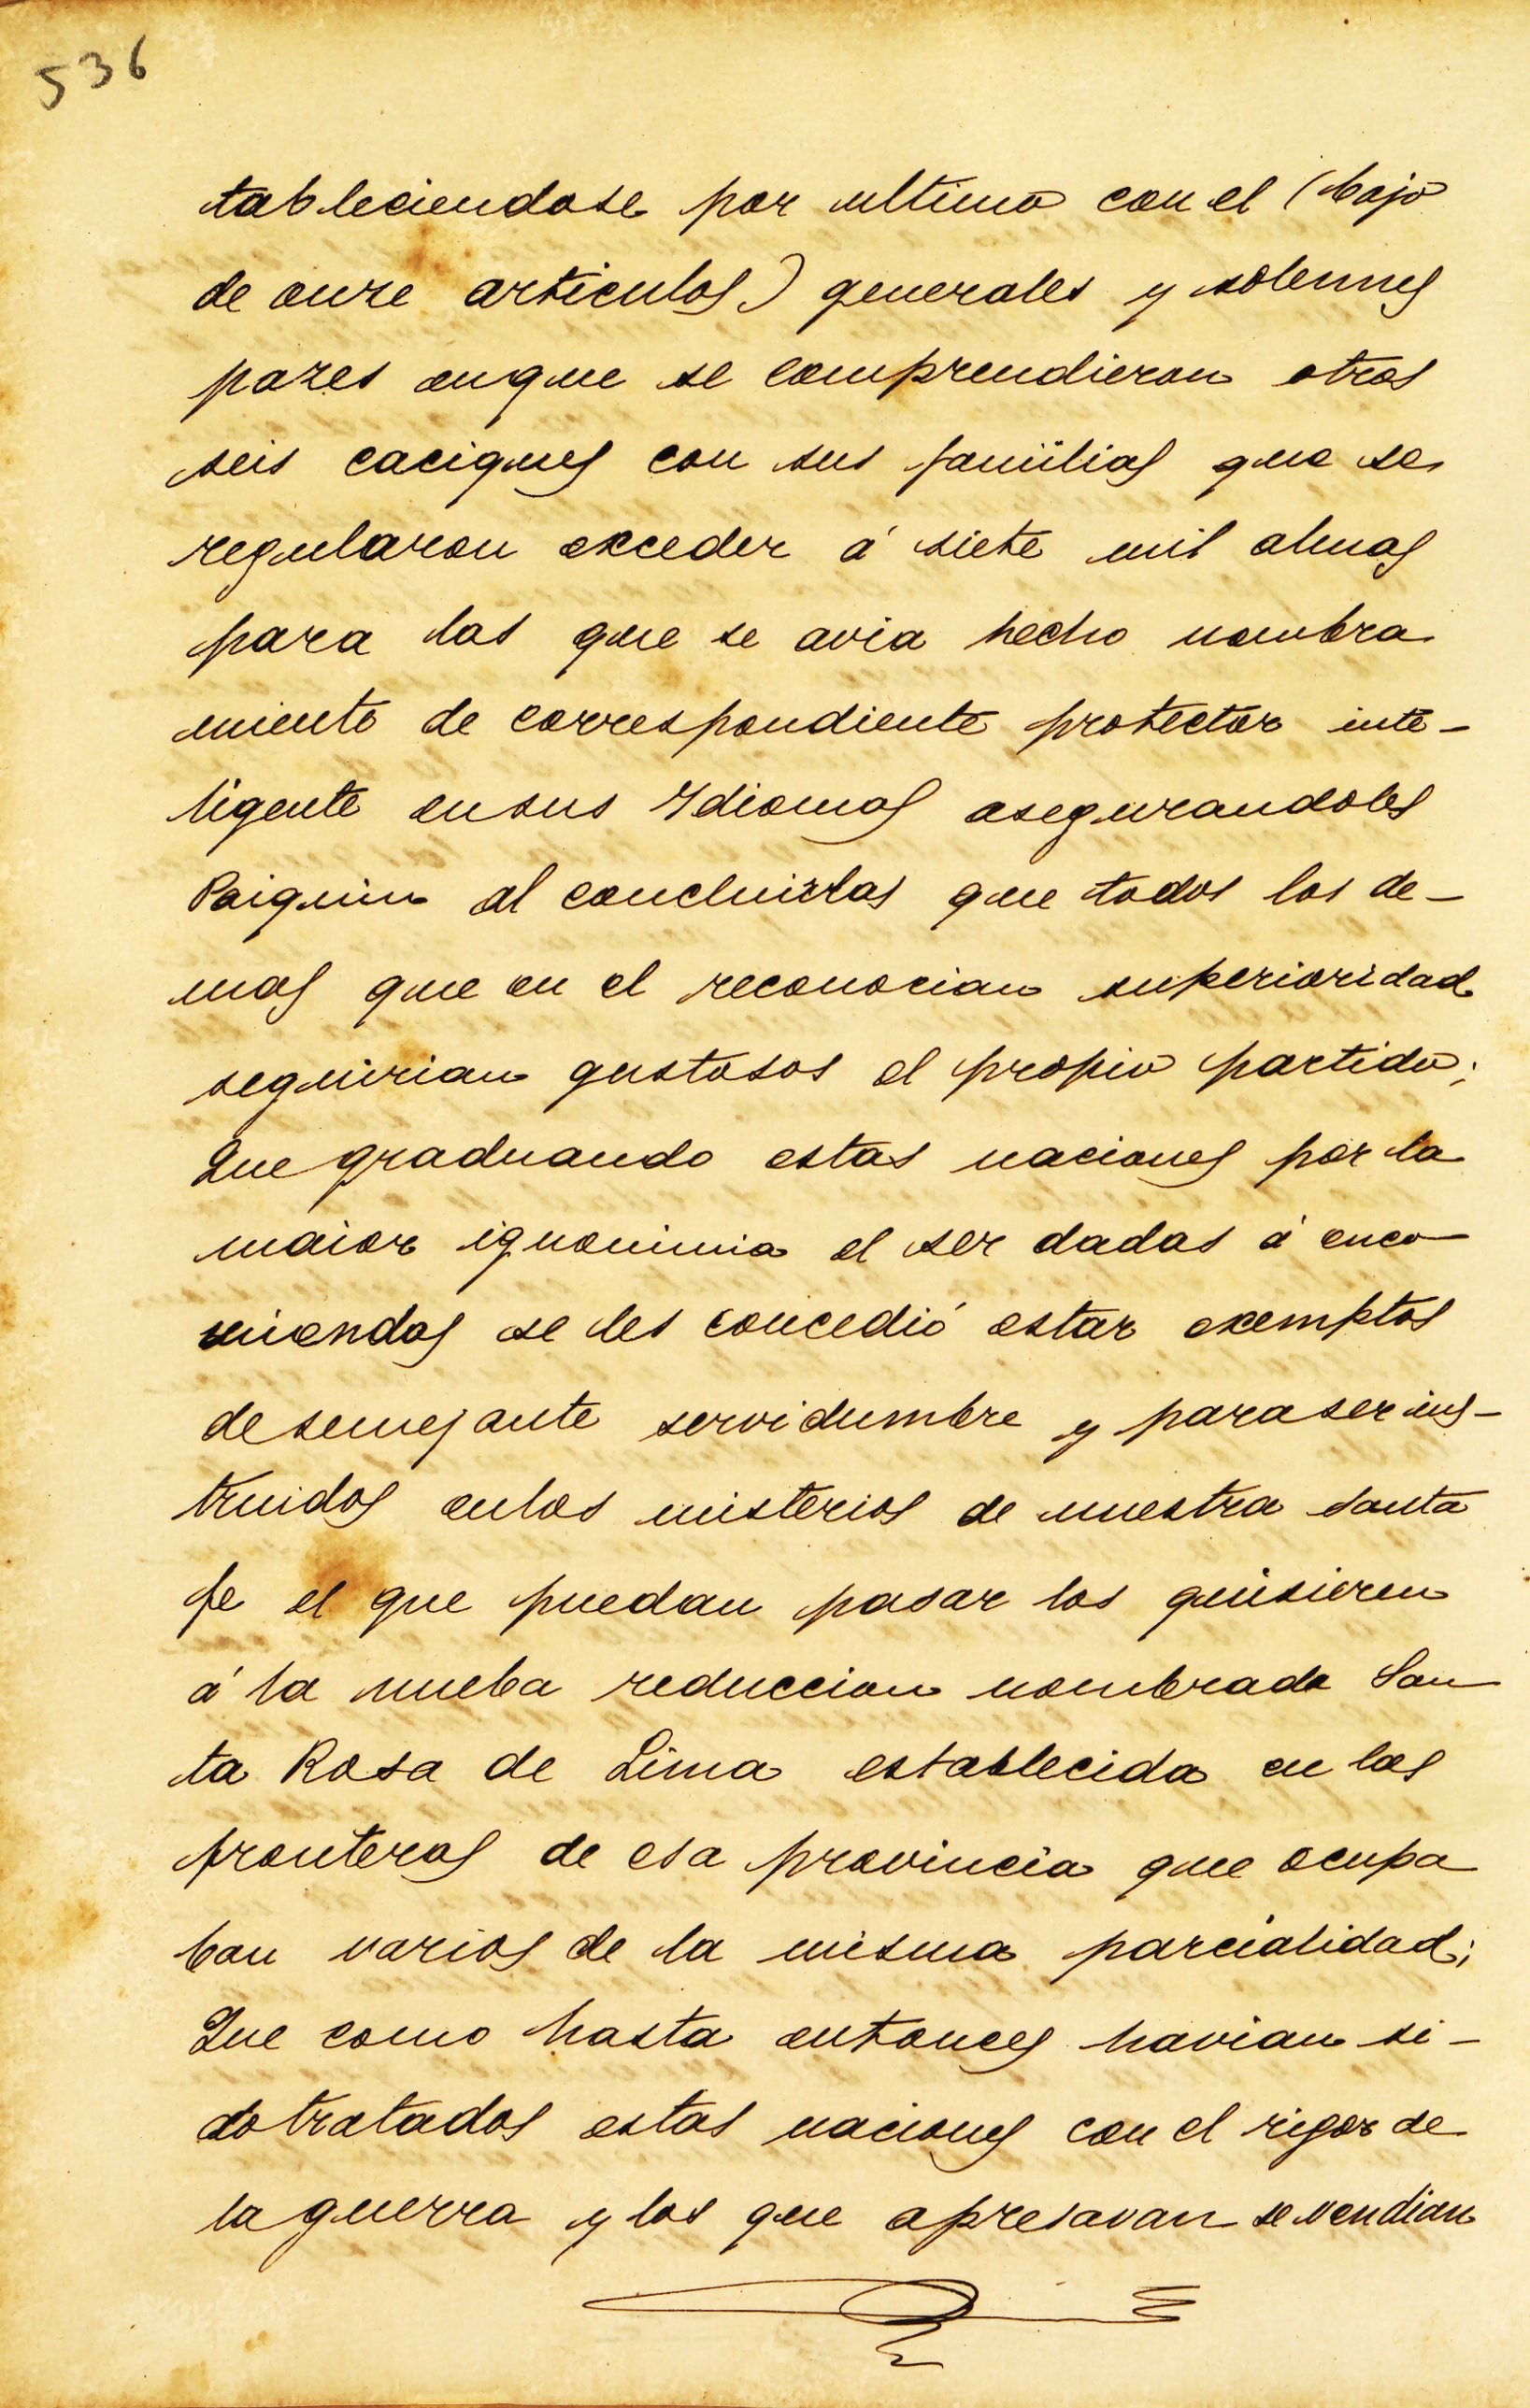 536
tableciendose por ultimo con el (bajo
de onze articulos) generales y solemnes
pazes enque se comprendieron otros
seis caciques con sus familias que se
regularon exceder á siete mil almas
para las que se avia hecho nombra
miento de correspondiente protector inte-
ligente ensus Idiomas asegurandoles
Paiquin al concluirlas que todos los de-
mas que en el reconocian superioridad
seguirian gustosos el propio partido;
Que graduando estas naciones por la
maior ignominia el ser dadas á enco
miendas se les concedió estar exemptos
de semejante servidumbre y para ser ins-
truidos enlos misterios de nuestra santa
fe el que puedan pasar los quisieren
á la nueba reduccion nombrada San
ta Rosa de Lima establecida en las
fronteras de esa provincia que ocupa
ban varios de la misma parcialidad;
Que como hasta entonces havian si-
do tratados estas naciones con el rigor de
la guerra y los que apresavan se vendian